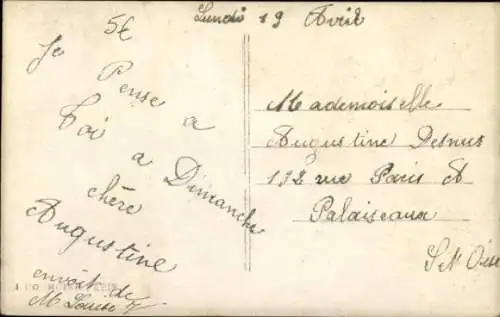 5€
Lundi 19 Avril
Je
Pense a
Toi a Dimanche
chère
Augustine
envoit de
M Louise
Mademoiselle
Augustine Desnus
192 rue Paris A
Palaiseaux
S et Oise